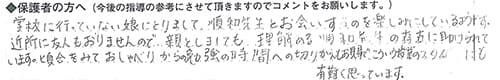 ◆保護者の方へ（今後の指導の参考にさせて頂きますのでコメントをお願いします。）
学校に行っていない娘にとりまして、順和先生とお会いするのを楽しみにしているようです。
近所に友人もおりませんので、親としましても、理解のある順和先生の存在に助けられて
います。頃合をみておしゃべりから勉強の時間への切りかえもお見事で こういう
有難く思っています。